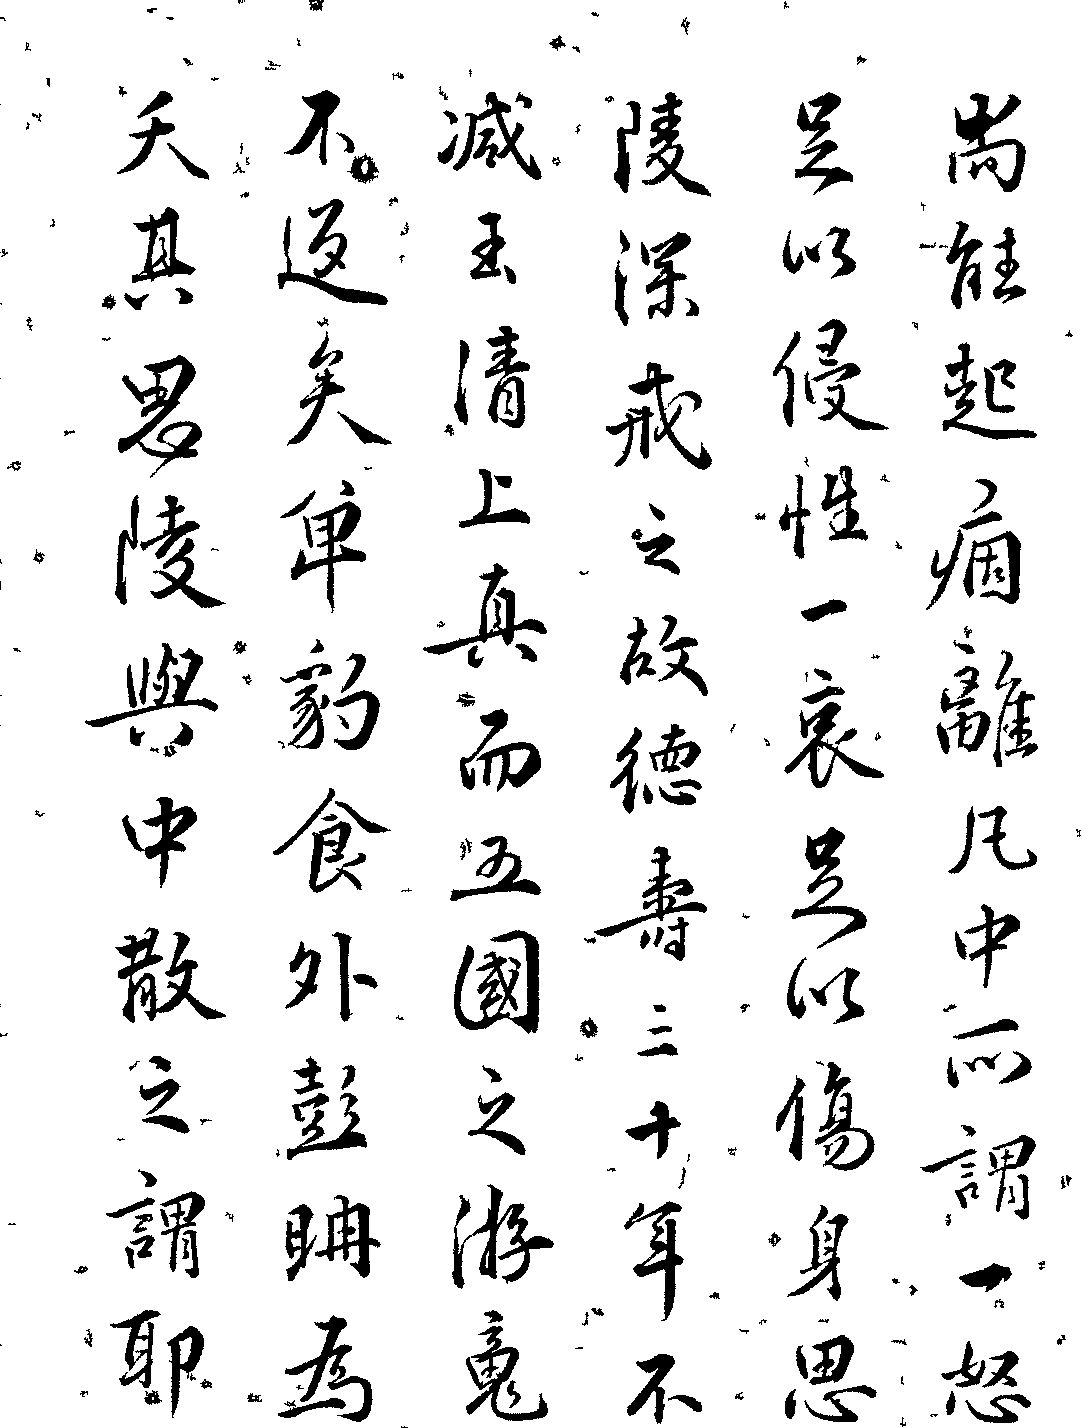 尚能起痼離凡中所謂一怒
足以侵性一哀足以傷身思
陵深戒之故德壽三十年不
減玉清上真而五國之游魂
不返矣單豹食外彭聃為
夭其思陵與中散之謂耶